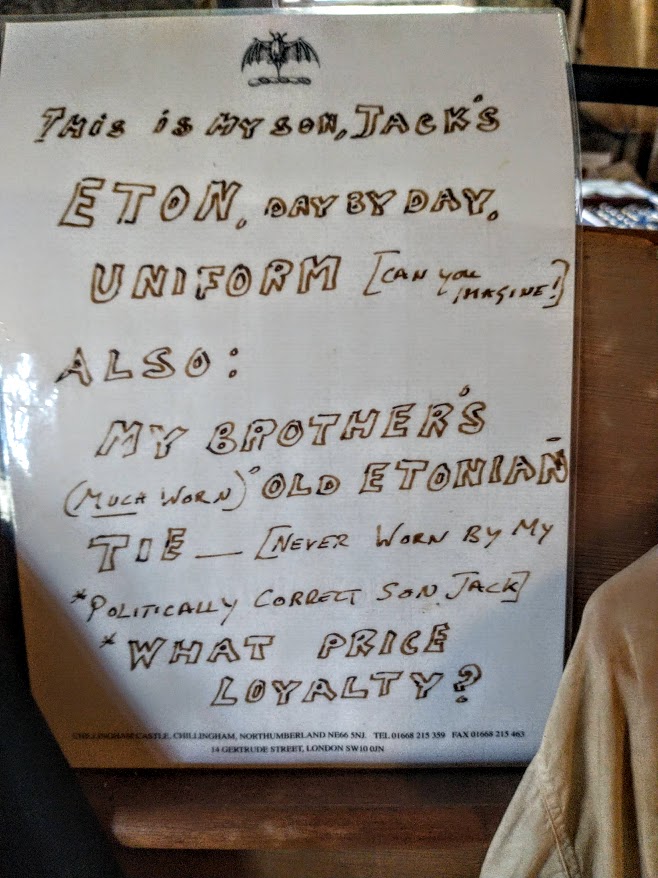 THIS IS MY SON, JACK'S
ETON, DAY BY DAY,
UNIFORM [CAN YOU
IMAGINE!]
ALSO:
MY BROTHER'S
(MUCH WORN) "OLD ETONIAN"
TIE — [NEVER WORN BY MY
*POLITICALLY CORRECT SON JACK]
*WHAT PRICE
LOYALTY?
CHILLINGHAM CASTLE, CHILLINGHAM, NORTHUMBERLAND NE66 5NJ. TEL 01668 215 359 FAX 01668 215 463
14 GERTRUDE STREET, LONDON SW10 0JN